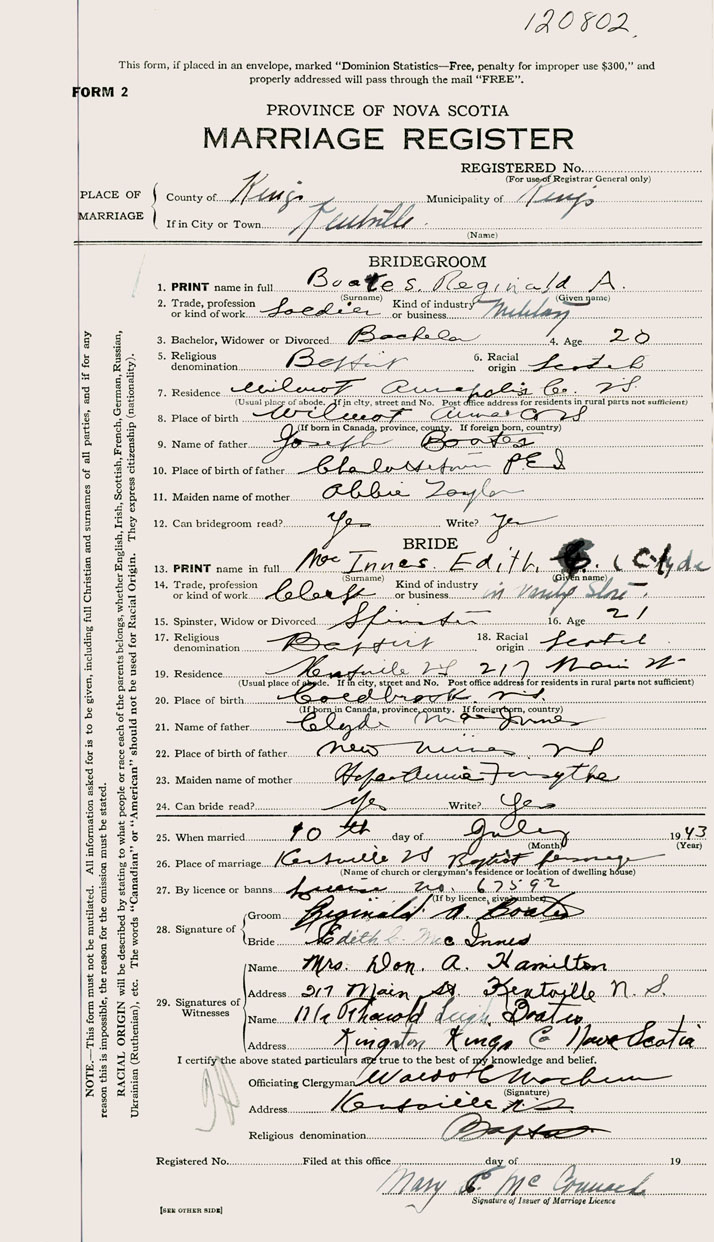 120802.
This form, if placed in an envelope, marked "Dominion Statistics—Free, penalty for improper use $300," and
properly addressed will pass through the mail "FREE".
FORM 2
PROVINCE OF NOVA SCOTIA
MARRIAGE REGISTER
REGISTERED No.
(For use of Registrar General only)
PLACE OF MARRIAGE
County of Kings Municipality of Kings
If in City or Town Kentville
(Name)
BRIDEGROOM
1. PRINT name in full Boates Reginald A.
(Surname) (Given name)
2. Trade, profession or kind of work Soldier Kind of industry or business Military
3. Bachelor, Widower or Divorced Bachelor 4. Age 20
5. Religious denomination Baptist 6. Racial origin Scotch
7. Residence Wilmot Annapolis Co. NS
(Usual place of abode. If in city, street and No. Post office address for residents in rural parts not sufficient)
8. Place of birth Wilmot Anna Co NS
(If born in Canada, province, county. If foreign born, country)
9. Name of father Joseph Boates
10. Place of birth of father Charlottetown PEI
11. Maiden name of mother Abbie Taylor
12. Can bridegroom read? Yes Write? Yes
BRIDE
13. PRINT name in full Mac Innes Edith C. (Clyde
(Surname) (Given name)
14. Trade, profession or kind of work Clerk Kind of industry or business in variety Store
15. Spinster, Widow or Divorced Spinster 16. Age 21
17. Religious denomination Baptist 18. Racial origin Scotch
19. Residence Kentville NS 217 Main St
(Usual place of abode. If in city, street and No. Post office address for residents in rural parts not sufficient)
20. Place of birth Coldbrook N.S.
(If born in Canada, province, county. If foreign born, country)
21. Name of father Clyde MacInnes
22. Place of birth of father New Minas NS
23. Maiden name of mother Annie Forsythe
24. Can bride read? Yes Write? Yes
25. When married 10th day of July 1943
(Month) (Year)
26. Place of marriage Kentville NS Baptist Parsonage
(Name of church or clergyman's residence or location of dwelling house)
27. By licence or banns license no. 67592
(If by licence, give number)
28. Signature of
Groom Reginald A. Boates
Bride Edith C. Mc Innes
29. Signatures of Witnesses
Name Mrs. Don. A. Hamilton
Address 217 Main St. Kentville N.S.
Name Leigh Boates
Address Kingston Kings Co Nova Scotia
I certify the above stated particulars are true to the best of my knowledge and belief.
Officiating Clergyman
(Signature)
Address Kentville NS
Religious denomination Baptist
Registered No. Filed at this office day of 19
Mary
Signature of Issuer of Marriage Licence
[SEE OTHER SIDE]
NOTE.—This form must not be mutilated. All information asked for is to be given, including full Christian and surnames of all parties, and if for any
reason this is impossible, the reason for the omission must be stated.
RACIAL ORIGIN will be described by stating to what people or race each of the parents belongs, whether English, Irish, Scottish, French, German, Russian,
Ukrainian (Ruthenian), etc. The words "Canadian" or "American" should not be used for Racial Origin. They express citizenship (nationality).